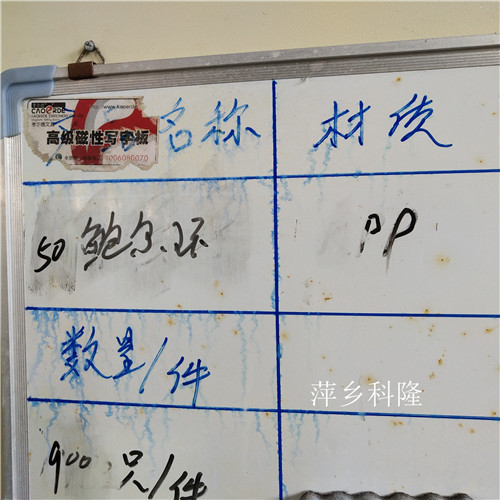 CAOERDE
高级磁性写字板
4006080070
名称
材质
50 鲍尔环
PP
数量/件
900只/件
萍乡科隆